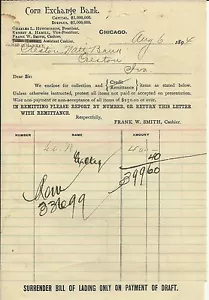 Corn Exchange Bank.
CAPITAL, $1,000,000.
SURPLUS, $1,000,000.
CHARLES L. HUTCHINSON, President.
ERNEST A. HAMILL, Vice-President.
FRANK W. SMITH, Cashier.
Assistant Cashier.
CHICAGO, Aug 6 189
Creston Natl Bank
Creston
Iowa
Dear Sir:
We enclose for collection and Credit Remittance items as stated below.
Unless otherwise instructed, protest all items not paid or accepted on presentation.
Wire non-payment or non-acceptance of all items of $500.00 or over.
IN REMITTING PLEASE REPORT BY NUMBER, OR RETURN THIS LETTER
WITH REMITTANCE.
Respectfully,
FRANK W. SMITH, Cashier.
NUMBER NAME AMOUNT
400
40
39960
33699
SURRENDER BILL OF LADING ONLY ON PAYMENT OF DRAFT.